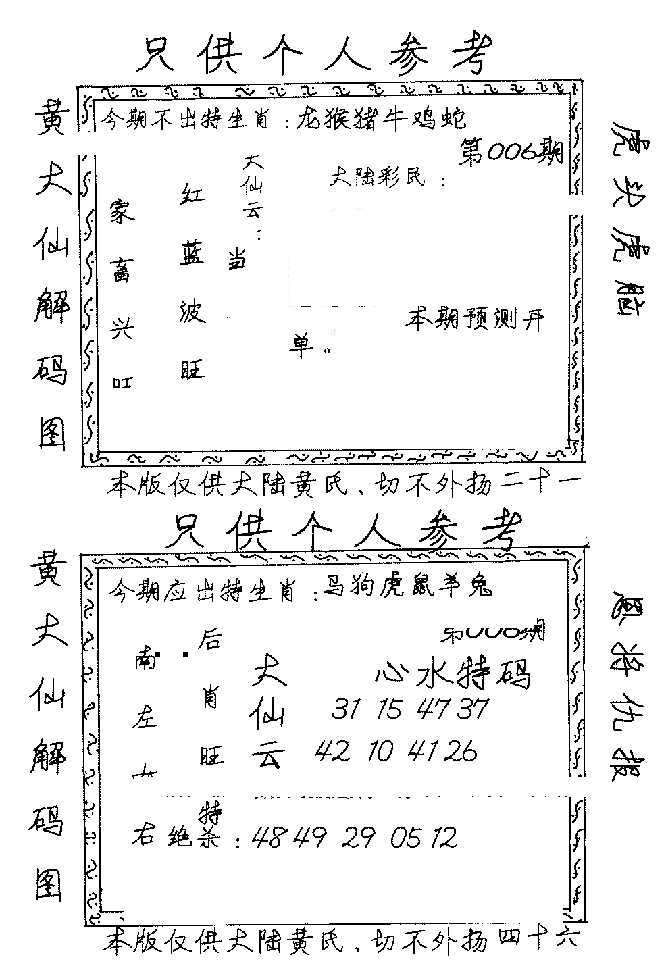 只供个人参考
黄大仙解码图
今期不出特生肖：龙猴猪牛鸡蛇
第006期
大陆彩民：
大仙云：
当
红蓝波旺
家畜兴旺
本期预测开
单。
虎头虎脑
本版仅供大陆黄氏、切不外扬二十一
只供个人参考
黄大仙解码图
今期应出特生肖：马狗虎鼠羊兔
第006期
心水特码
31 15 47 37
42 10 41 26
大仙云
后肖旺特
南
左
右
绝杀：48 49 29 05 12
恩将仇报
本版仅供大陆黄氏、切不外扬四十六